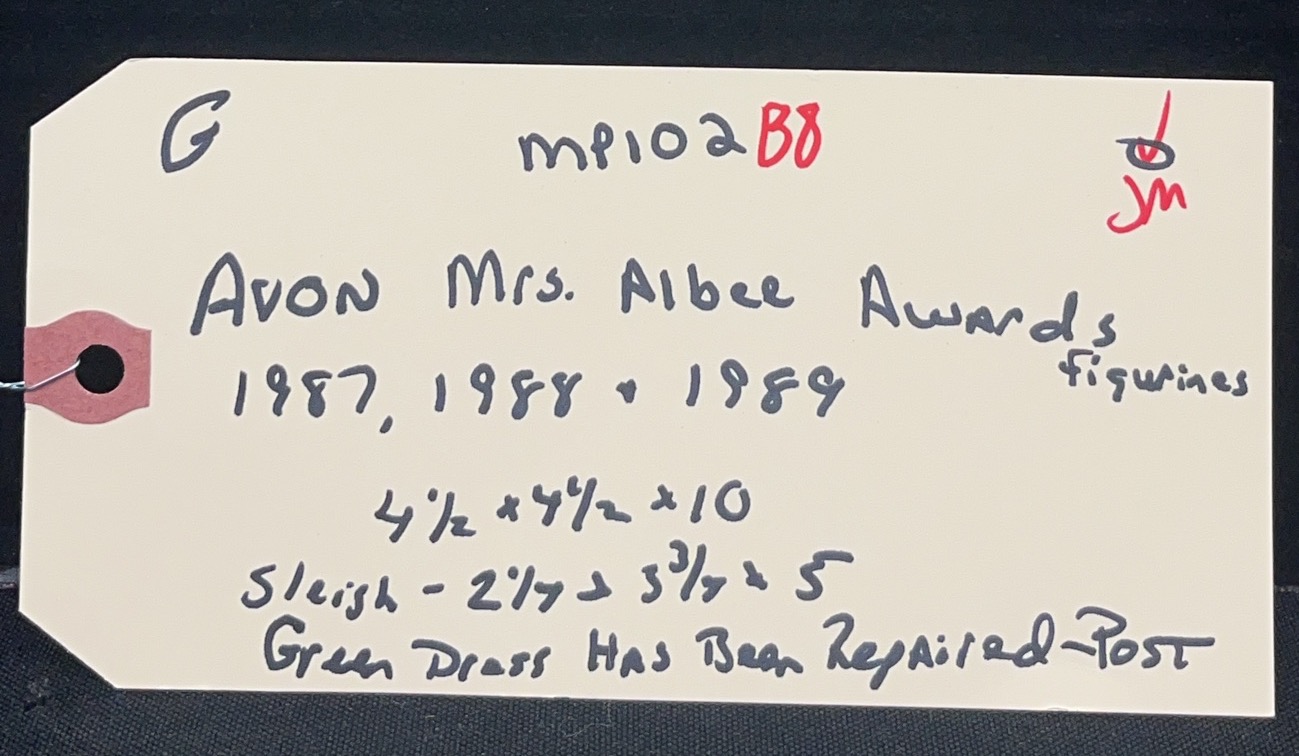 G mp102 B8
JM
AVON Mrs. Albee Awards
figurines
1987, 1988 + 1989
4 1/2 x 4 1/2 x 10
Sleigh - 2 1/4 x 3 3/4 x 5
Green Dress Has Been Repaired - Post